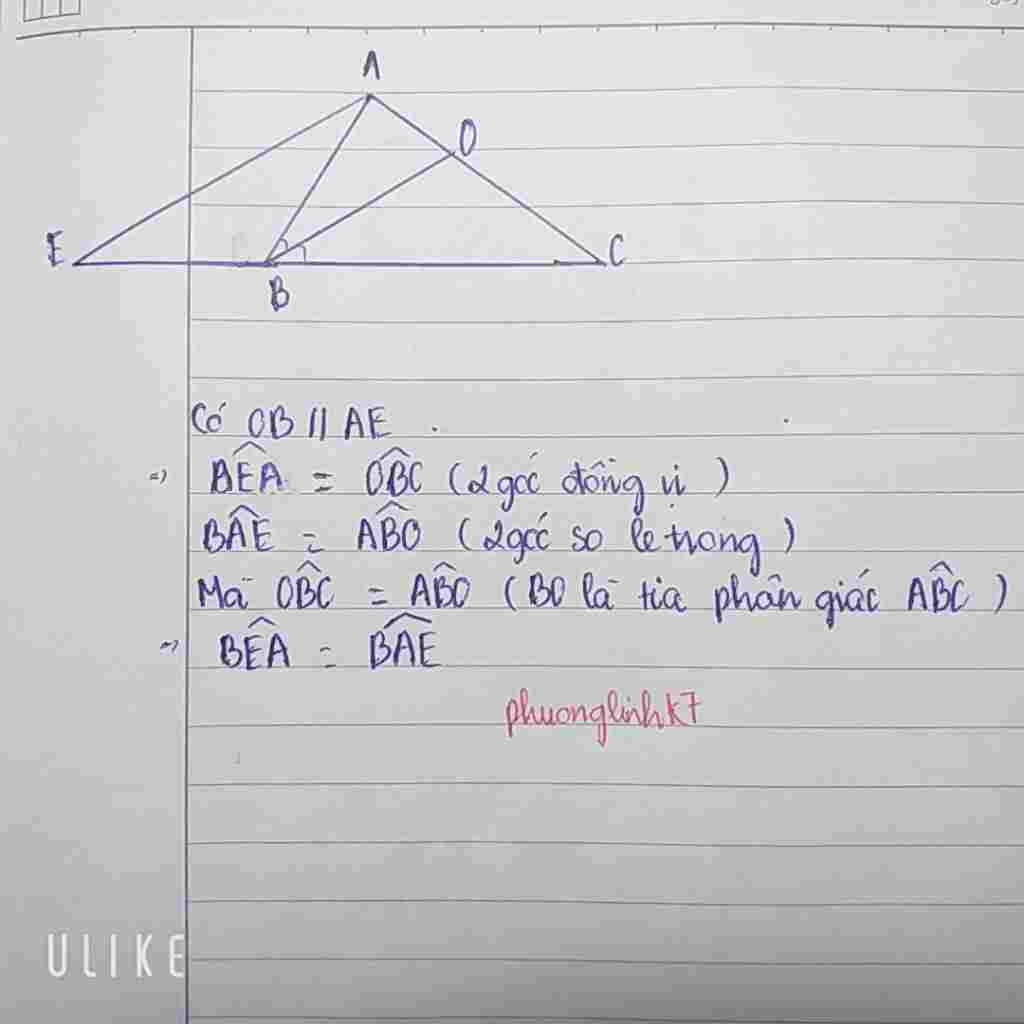 A
O
E
C
B
Có OB // AE .
=) BÊA = OB̂C (2 góc đồng vị)
BÂE = AB̂O (2 góc so le trong)
Mà OB̂C = AB̂O (BO là tia phân giác AB̂C)
=) BÊA = BÂE
phuonglinhk7
ULIKE